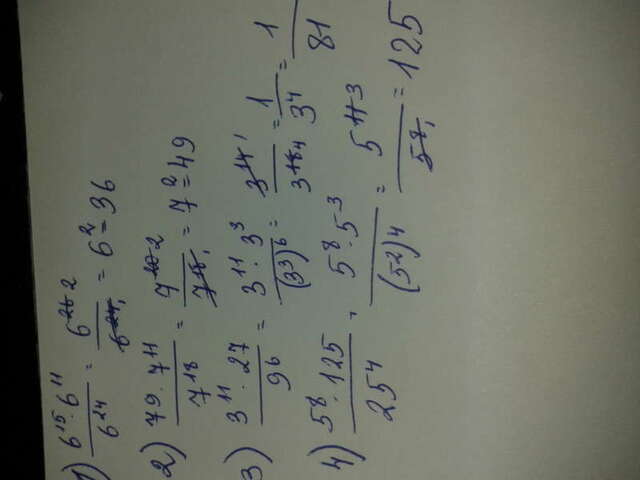 1) 6^15 · 6^11 / 6^24 = 6^26 2 / 6^24 1 = 6^2 = 36
2) 7^9 · 7^11 / 7^18 = 7^20 2 / 7^18 1 = 7^2 = 49
3) 3^11 · 27 / 9^6 = 3^11 · 3^3 / (3^3)^6 = 3^14 1 / 3^18 4 = 1 / 3^4 = 1 / 81
4) 5^8 · 125 / 25^4 = 5^8 · 5^3 / (5^2)^4 = 5^11 3 / 5^8 1 = 125